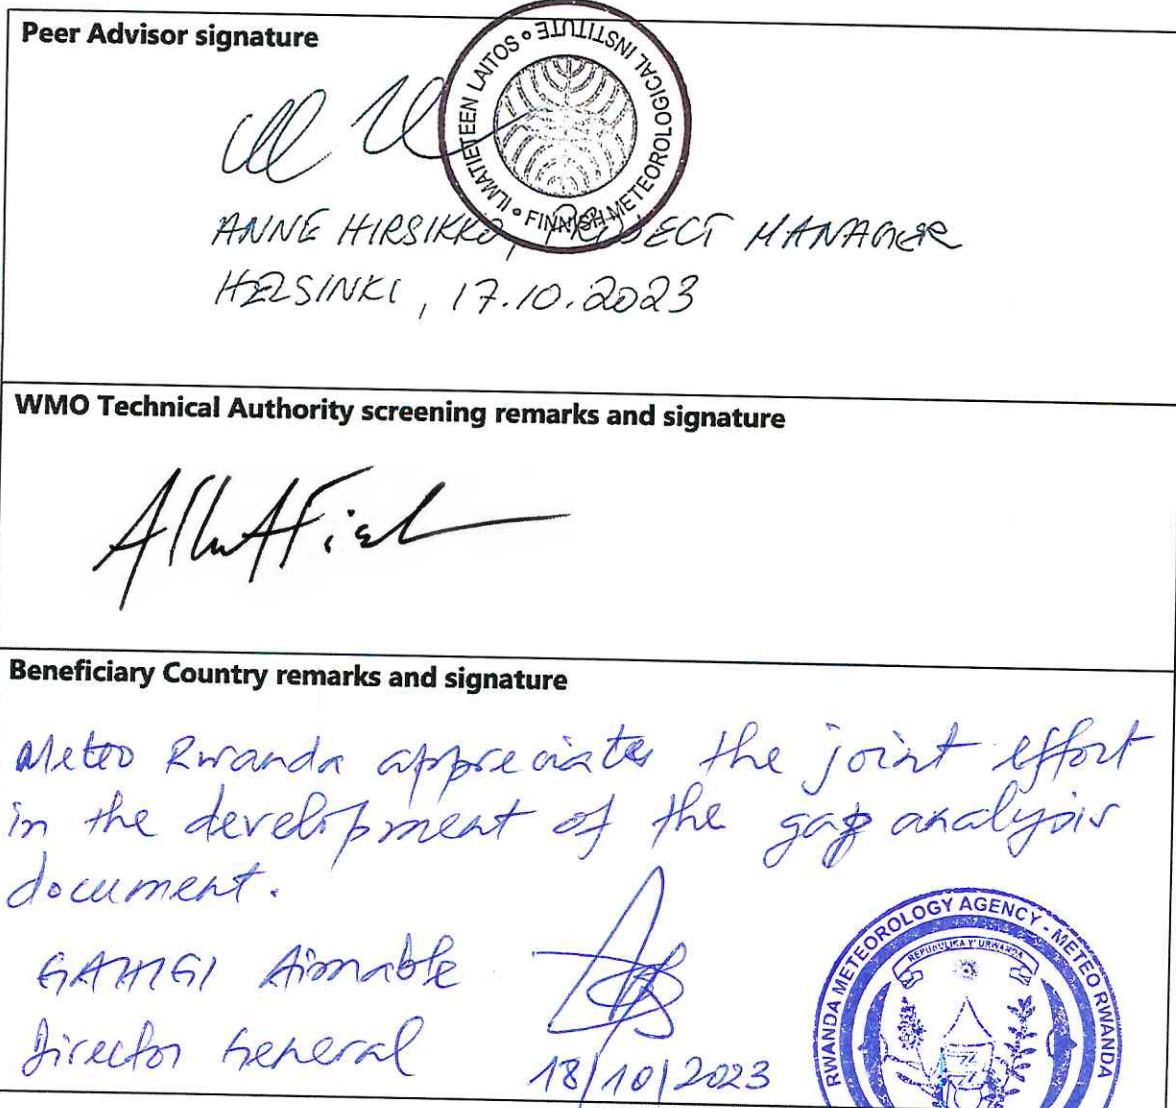 Peer Advisor signature
ILMATIETEEN LAITOS • FINNISH METEOROLOGICAL INSTITUTE •
ANNE HIRSIKKO, PROJECT MANAGER
HELSINKI, 17.10.2023
WMO Technical Authority screening remarks and signature
Beneficiary Country remarks and signature
Meteo Rwanda appreciates the joint effort
in the development of the gap analysis
document.
GAHIGI Aimable
Director General
18/10/2023
RWANDA METEOROLOGY AGENCY - METEO RWANDA
REPUBULIKA Y'URWANDA